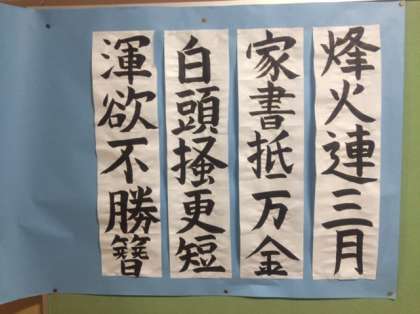 烽火連三月
家書抵万金
白頭掻更短
渾欲不勝簪